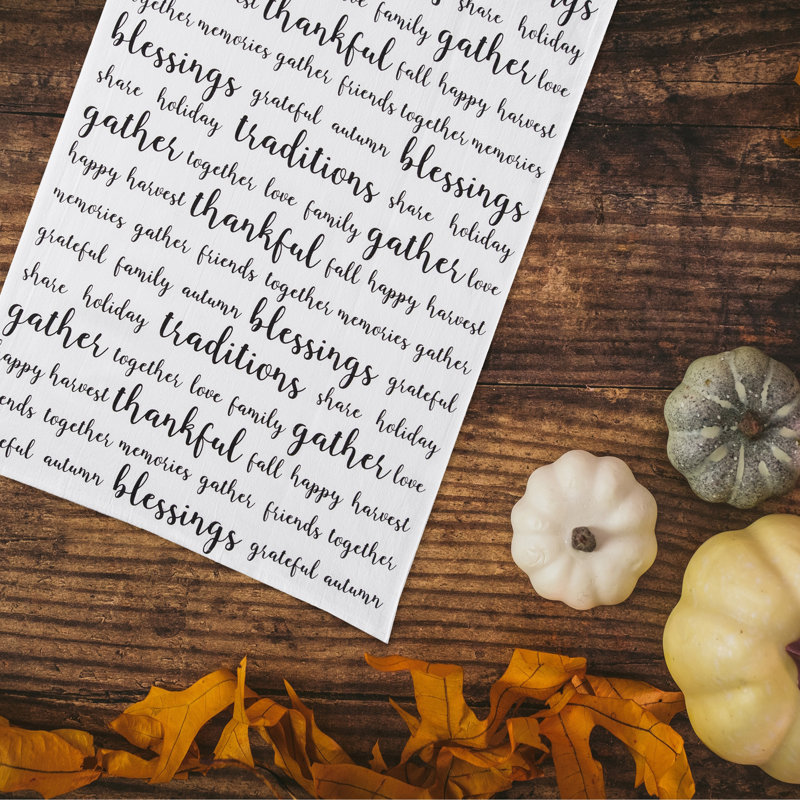 ings
share holiday
love family gather love
est thankful fall happy harvest
together memories gather friends together memories
blessings grateful autumn blessings
share holiday traditions share holiday
gather together love family gather love
happy harvest thankful fall happy harvest
memories gather friends together memories gather
grateful family autumn blessings grateful
share holiday traditions share holiday
gather together love family gather love
happy harvest thankful fall happy harvest
ends together memories gather friends together
eful autumn blessings grateful autumn